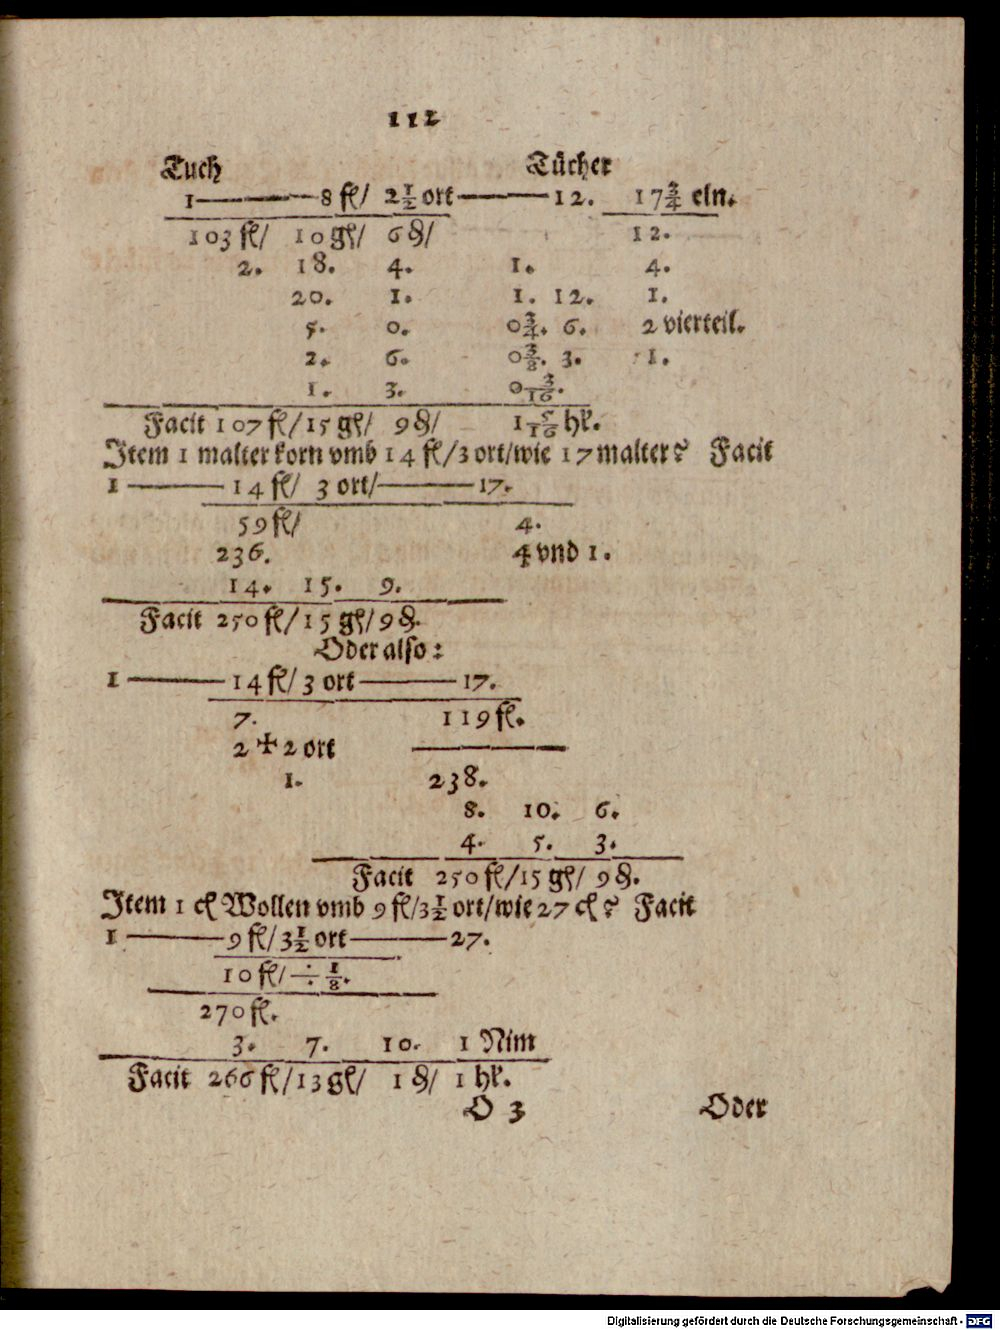 112
Tuch Tücher
1———8 fl/ 2½ ort———12. 17¾ eln.
103 fl/ 10 gl/ 6 ₰/ 12.
2. 18. 4. 1. 4.
20. 1. 1. 12. 1.
5. 0. 0¾. 6. 2 vierteil.
2. 6. 0⅜. 3. 1.
1. 3. 0 3/16.
Facit 107 fl/ 15 gl/ 9 ₰/ 1 5/16 hl.
Item 1 malter korn vmb 14 fl/ 3 ort/ wie 17 malter? Facit
1———14 fl/ 3 ort/———17.
59 fl/ 4.
236. 4 vnd 1.
14. 15. 9.
Facit 250 fl/ 15 gl/ 9 ₰.
Oder also:
1———14 fl/ 3 ort———17.
7. 119 fl.
2 ✠ 2 ort
1. 238.
8. 10. 6.
4. 5. 3.
Facit 250 fl/ 15 gl/ 9 ₰.
Item 1 cl Wollen vmb 9 fl/ 3½ ort/ wie 27 cl? Facit
1———9 fl/ 3½ ort———27.
10 fl/ ÷ ⅛.
270 fl.
3. 7. 10. 1 Nim
Facit 266 fl/ 13 gl/ 1 ₰/ 1 hl.
O 3 Oder
Digitalisierung gefördert durch die Deutsche Forschungsgemeinschaft - DFG